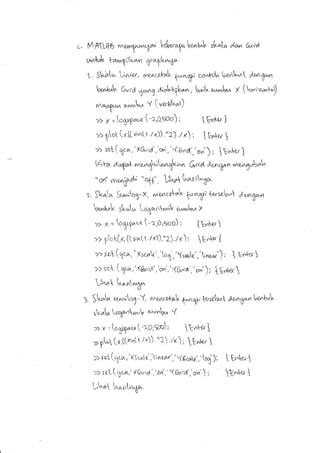 c. MATLAB mempunyai beberapa bentuk skala dan Grid
untuk tampilkan grafiknya.
1. Skala Linier, mencetak fungsi contoh berikut dengan
bentuk Grid yang diaktifkan, baik sumbu X (horizontal)
maupun sumbu Y (vertikal)
>> x = logspace (-2,0,500); {Enter}
>> plot (x,((sin(1./x)).^2)./x); {Enter}
>> set (gca, 'XGrid', 'on', 'YGrid', 'on'); {Enter}
Kita dapat menghilangkan Grid dengan mengubah
"on" menjadi "off". Lihat hasilnya.
2. Skala Semilog-X, mencetak fungsi tersebut dengan
bentuk skala Logaritmik sumbu X
>> x = logspace (-2,0,500); {Enter}
>> plot(x,((sin(1./x)).^2)./x); {Enter}
>> set (gca, 'Xscale', 'log', 'Yscale', 'linear'); {Enter}
>> set (gca, 'XGrid', 'on', 'YGrid', 'on'); {Enter}
Lihat hasilnya
3. Skala semilog-Y, mencetak fungsi tersebut dengan bentuk
skala Logaritmik sumbu Y.
>> x = logspace (-2,0,500); {Enter}
>> plot (x,((sin(1./x)).^2)./x); {Enter}
>> set (gca, 'XScale', 'linear', 'YScale', 'log'); {Enter}
>> set (gca, 'XGrid', 'on', 'YGrid', 'on'); {Enter}
Lihat hasilnya.